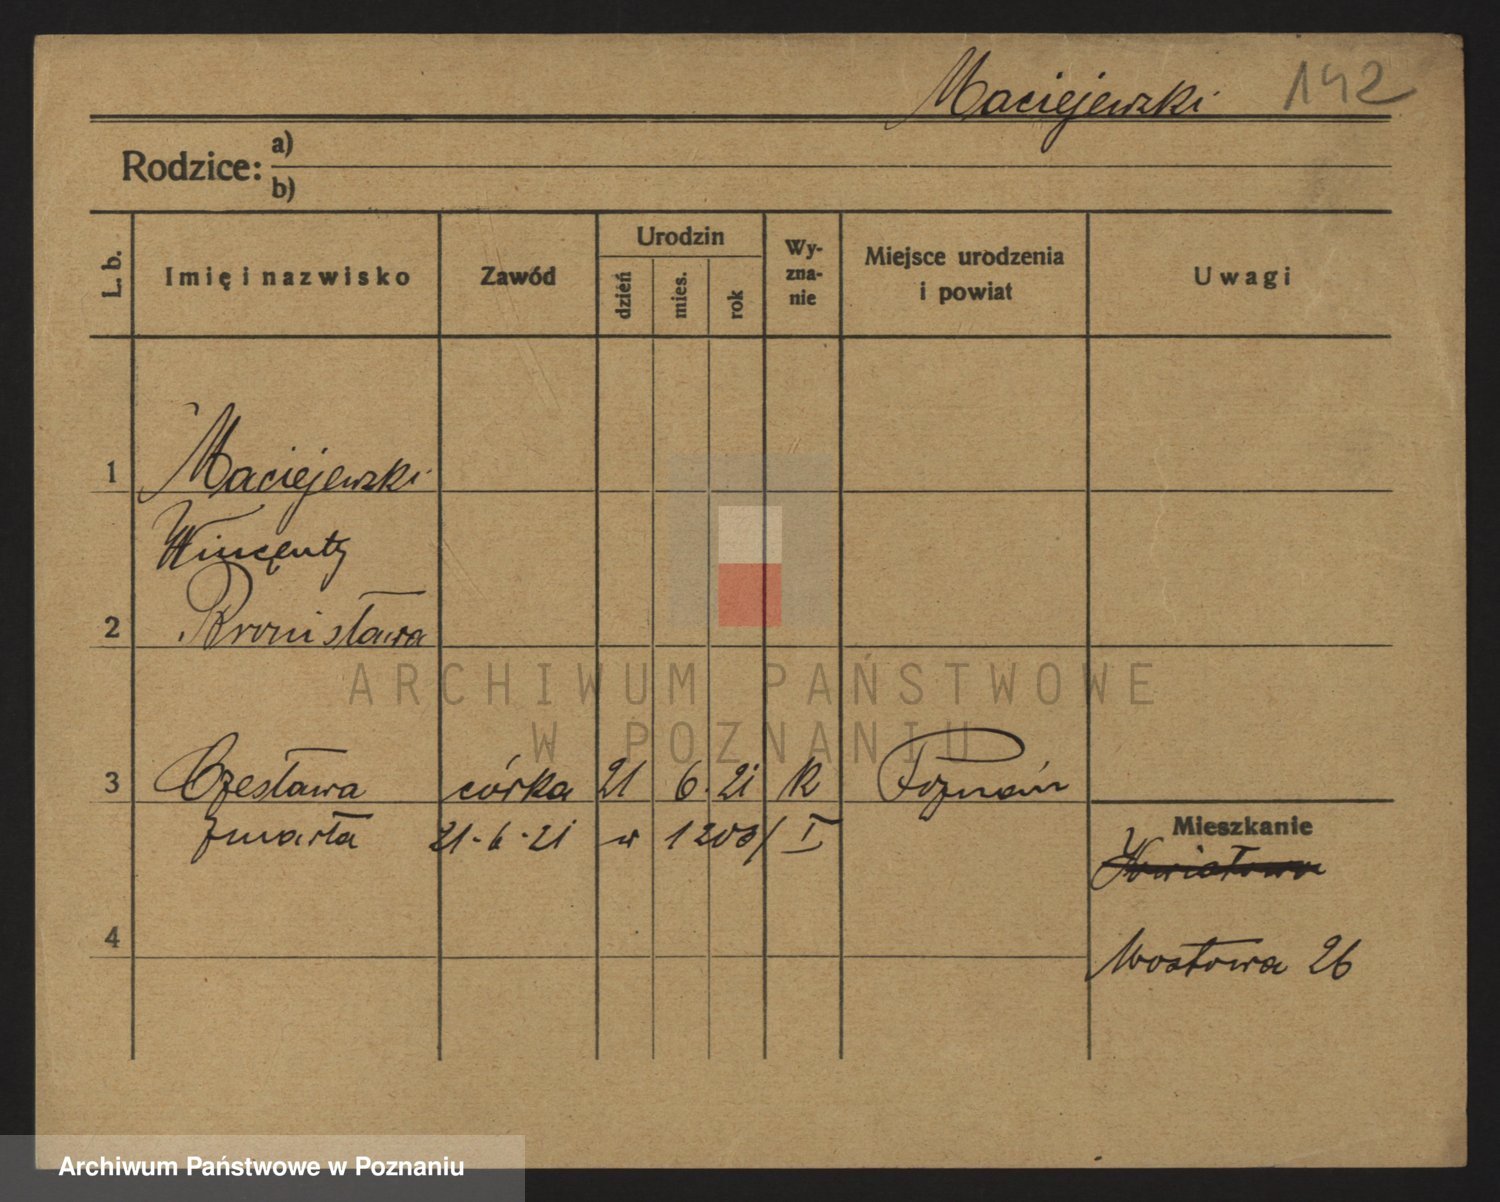 Maciejewski 142
Rodzice: a)
b)
L. b. Imię i nazwisko Zawód Urodzin dzień mies. rok Wy-zna-nie Miejsce urodzenia i powiat Uwagi
1 Maciejewski
Wincenty
2 Bronisława
ARCHIWUM PAŃSTWOWE
W POZNANIU
3 Czesława córka 21 6. 21 K Poznań
zmarła 21-6-21 w 1203/I
Mieszkanie
4
Mostowa 26
Archiwum Państwowe w Poznaniu